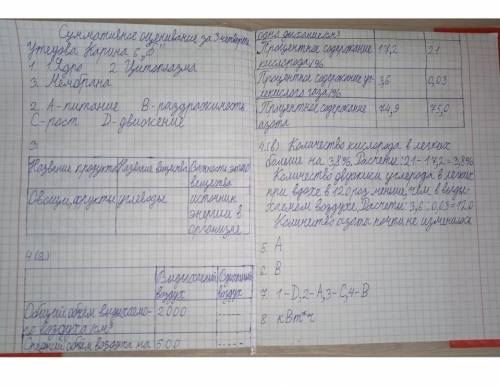 Суммативное оценивание за 3 четверть
Утедова Карина 6 „Б"
1. 1 Ядро 2 Цитоплазма
3. Мембрана
2. А-питание В-раздражимость
С-рост D-движение
3.
Название продукта Название вещества Важность этого вещества
Овощи, фрукты углеводы источник энергии в организме
4 (а)
Вдыхаемый воздух
воздух
Общий объём
го воздуха/см³ 2000 -----
Средний объём воздуха на 500 -----
одно дыхание/см³
Процентное содержание кислорода /% 17,2 21
Процентное содержание углекислого газа/% 3,6 0,03
Процентное содержание азота 74,9 75,0
4.(в) Количество кислорода в легких
больше на 3,8%. Расчеты: 21-17,2=3,8%
Количество двуокиси углерода в легких
при вдохе в 120 раз меньше, чем в выды-
хаемом воздухе. Расчеты: 3,6:0,03=120
Количество азота почти не изменилось
5. А
6. В
7. 1-D, 2-А, 3-С, 4-В
8. кВт*ч